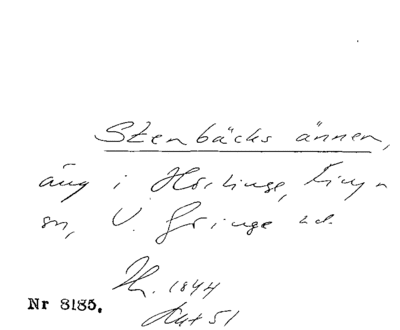 Stenbäcks ännen,
äng i Hörlinge, Finja
sn, V. Göinge hd.
Hr. 1844
Akt 51
Nr 8185.